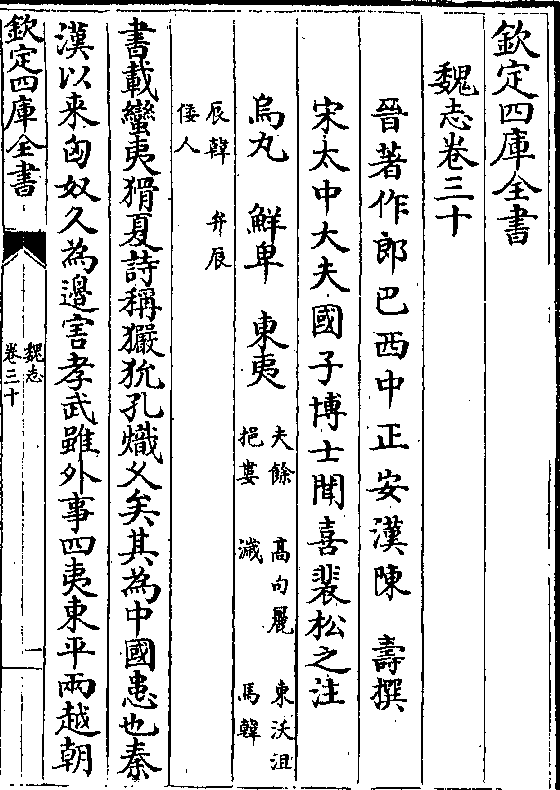 欽定四庫全書
魏志卷三十
晉著作郎巴西中正安漢陳壽撰
宋太中大夫國子博士聞喜裴松之注
烏丸 鮮卑 東夷 夫餘 高句麗 東沃沮
挹婁 濊 馬韓
辰韓 弁辰
倭人
書載蠻夷猾夏詩稱玁狁孔熾久矣其為中國患也秦
漢以来匈奴久為邊害孝武雖外事四夷東平兩越朝
欽定四庫全書
魏志
卷三十
一